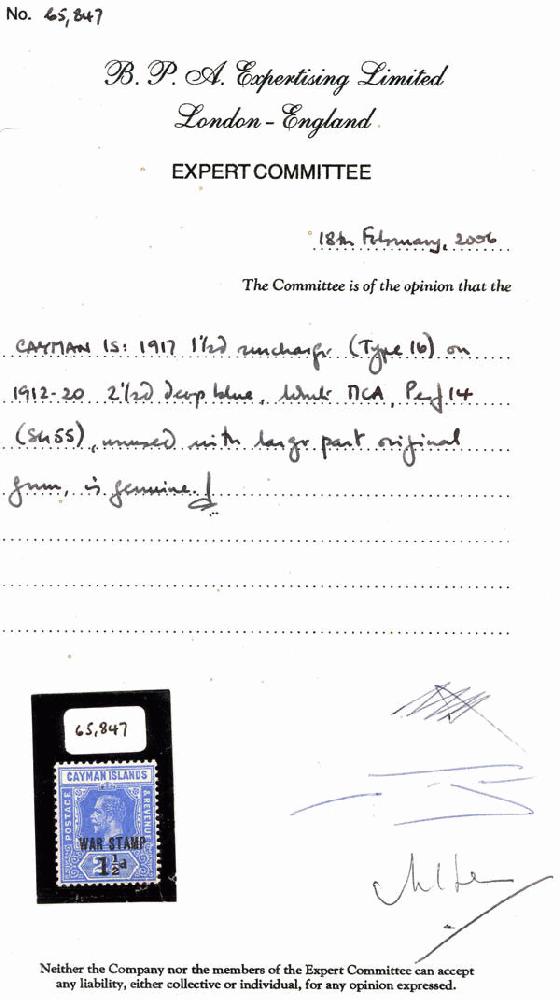 No. 65,847
B. P. A. Expertising Limited
London - England
EXPERT COMMITTEE
18th February, 2006
The Committee is of the opinion that the
CAYMAN IS: 1917 1½d surcharge (Type 16) on
1912-20 2½d deep blue, Wmk MCA, Perf 14
(SG55), unused with large part original
gum, is genuine.
65,847
CAYMAN ISLANDS
POSTAGE & REVENUE
WAR STAMP
1½d
Neither the Company nor the members of the Expert Committee can accept
any liability, either collective or individual, for any opinion expressed.